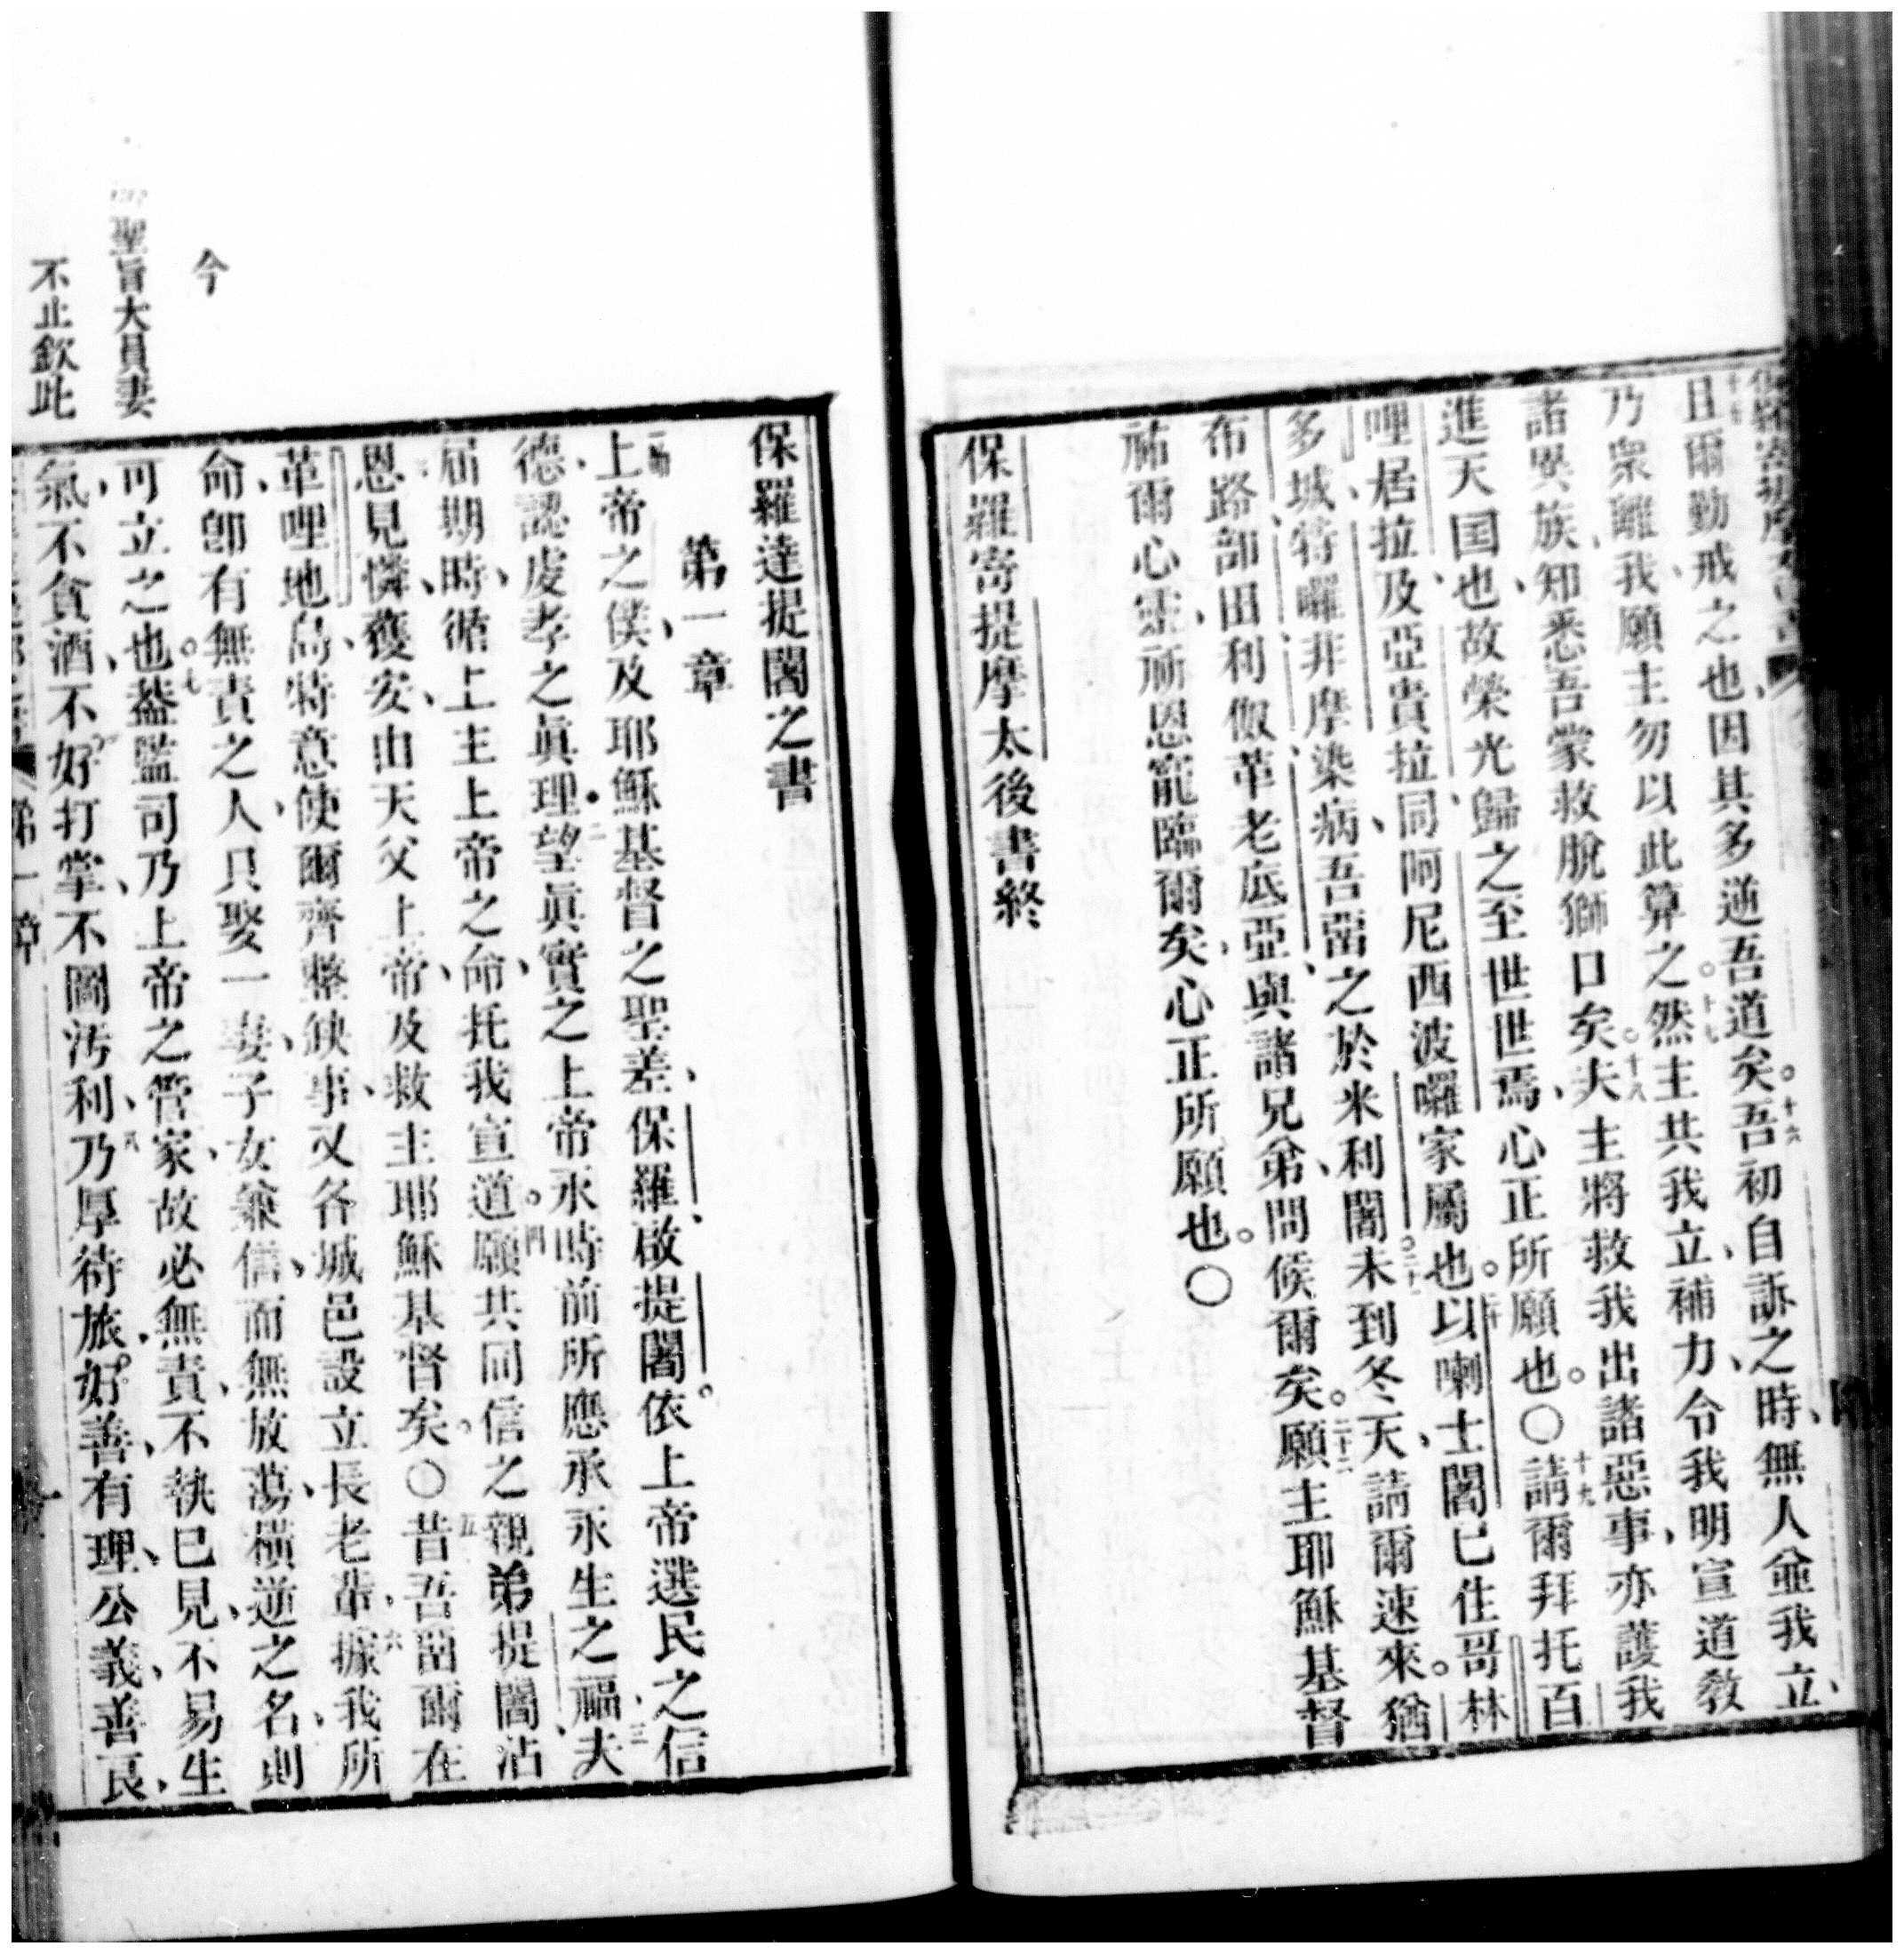 且爾勤戒之也、因其多逆吾道矣。十六吾初自訴之時、無人並我立、
乃衆離我、願主勿以此算之。十七然主共我立、補力、令我明宣道教
諸異族、知悉吾蒙救脫獅口矣。十八夫主將救我出諸惡事、亦護我
進天国也、故榮光歸之至世世焉、心正所願也。〇十九請爾拜托百
哩居拉、及亞貴拉、同阿尼西波囉家屬也。二十以喇士闍已住哥林
多城、特囉非摩染病、吾畱之於米利闍。二十一未到冬天、請爾速來。猶
布、路部田利伮革老底亞、與諸兄弟、問候爾矣。二十二願主耶穌基督
祐爾心靈、祈恩寵臨爾矣、心正所願也。〇
保羅寄提摩太後書終
保羅達提闍之書
第一章
一節上帝之僕、及耶穌基督之聖差、保羅、啟提闍。依上帝選民之信
德、認虔孝之眞理。二望眞實之上帝永時前所應承永生之福、三夫
届期時、循上主上帝之命、托我宣道。四願共同信之親弟提闍沾
恩見憐、獲安、由天父上帝、及救主耶穌基督矣。〇五昔吾畱爾在
革哩地島、特意使爾齊整缺事、又各城邑設立長老輩、六據我所
命、卽有無責之人、只娶一妻、子女兼信、而無放蕩、橫逆之名、則
可立之也。七蓋監司乃上帝之管家、故必無責、不執已見、不易生
氣、不貪酒、不好打掌、不圖汚利、八乃厚待旅、好善、有理、公義、善良、
今
聖旨大員妻
不止欽此